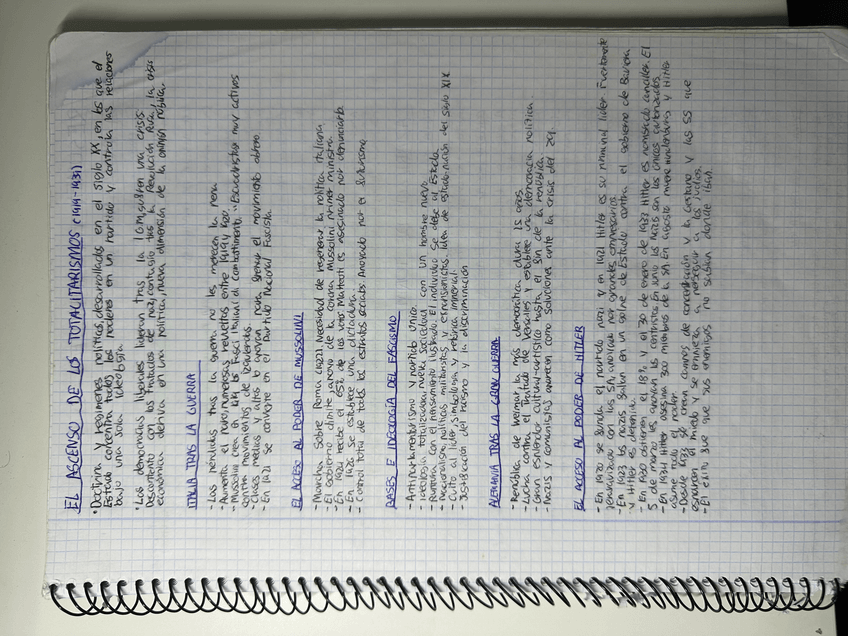 EL ASCENSO DE LOS TOTALITARISMOS (1919-1939)
• Doctrina y regímenes políticos, desarrollados en el siglo XX, en los que el
Estado concentra todos los poderes en un partido y controla las relaciones
bajo una sola ideología.
• Las democracias liberales lideran tras la I G.M, sufren una crisis
Descontento con los tratados de paz, contagio tras la Revolución Rusa, la crisis
económica deriva en una política, nueva dimensión de la opinión pública.
ITALIA TRAS LA GUERRA
- Las pérdidas tras la guerra no les merecen la pena
- Aumenta el paro, numerosas revueltas entre 1919 y 1920.
- Mussolini crea en 1919 los Fascios Italianos di Combattimento.
contra movimientos de izquierdas.
- Clases medias y altas lo apoyan para frenar el movimiento obrero
- En 1921 se convierte en el Partido Nacional Fascista.
EL ACCESO AL PODER DE MUSSOLINI
- Marcha Sobre Roma (1922). Necesidad de regenerar la política italiana
- El Gobierno dimite, apoyo de la corona. Mussolini primer ministro.
- En 1924 recibe el 65% de los votos Matteoti es asesinado por denunciarlo.
- En 1926 se establece una dictadura.
- Control total de todos los estratos sociales. Apoyado por el futurismo
BASES E IDEOLOGÍA DEL FASCISMO
- Antiparlamentarismo y partido único.
- Ideología totalizadora, nueva sociedad con un hombre nuevo.
- Ruptura con el pensamiento ilustrado. El individuo se debe al Estado.
- Nacionalismo, políticas militaristas, expansionistas. Idea de estado nación del siglo XIX
- Culto al líder, simbología y retórica imperial.
- Justificación del racismo y la discriminación
ALEMANIA TRAS LA GRAN GUERRA
- República de Weimar la más democrática, dura 15 años.
- Lucha contra el Tratado de Versalles y establece una democracia política
- Gran esplendor cultural-artístico hasta el fin de la república.
- Nazis y comunistas aparecen como soluciones ante la crisis del 29.
EL ACCESO AL PODER DE HITLER
- En 1920 se funda el partido nazi y en 1921 Hitler es su principal líder. Fuertemente
jerarquizado con las SA, apoyado por grandes empresarios.
- En 1923 los nazis fallan en un golpe de Estado contra el gobierno de Baviera
y Hitler es detenido.
- En 1930 obtienen el 18% y el 30 de enero de 1933 Hitler es nombrado canciller. El
5 de marzo les apoyan los centristas. En junio los nazis son los únicos autorizados.
- En 1934 Hitler asesina 300 miembros de la SA. En agosto muere Hindenburg y Hitler
asume todo el poder.
- Desde 1933 se crean campos de concentración y la Gestapo y las SS que
expanden el miedo y se empieza a perseguir a los judíos.
- El éxito fue que sus enemigos no sabían dónde iban.